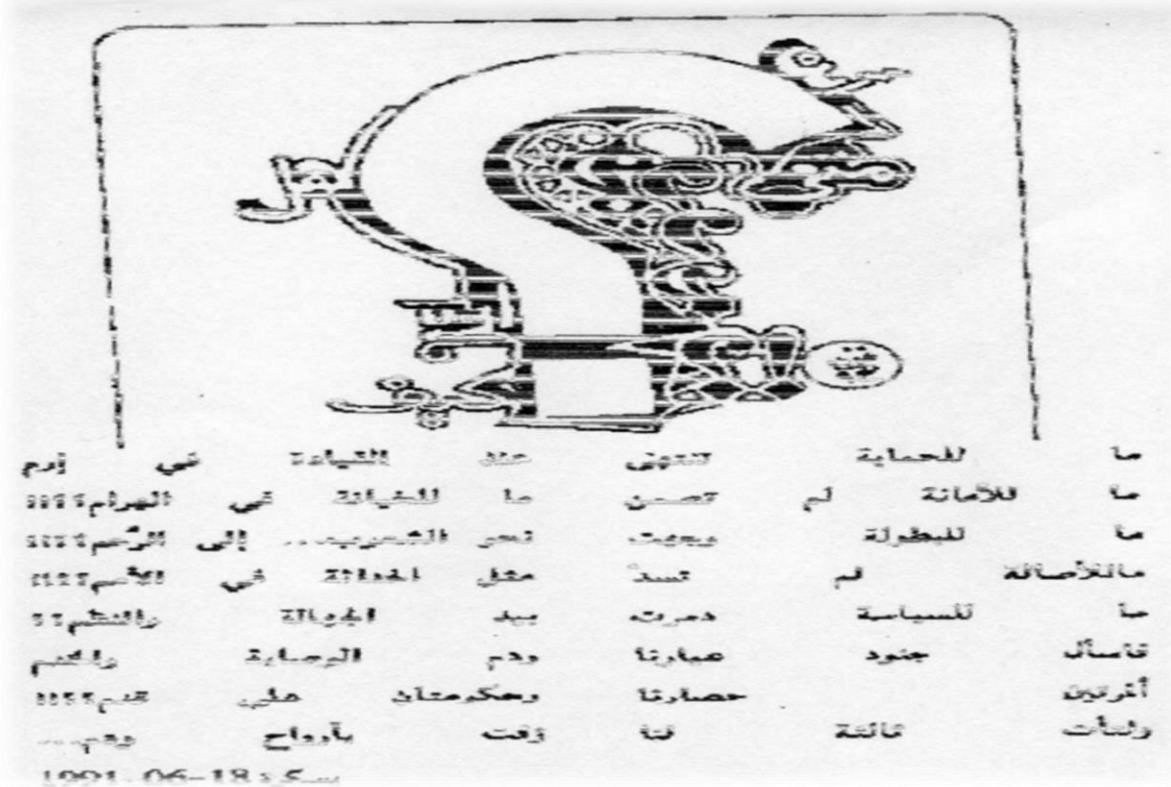 ما للحماية تنتهي عند القيادة في إرم
ما للأمانة لم تصن ما للخيانة في الهرام؟؟؟؟
ما للبطولة وجهت نحو الشعوب... إلى الرّحم؟؟؟؟
ماللأصالة لم تسدْ مثل الحداثة في الأمم؟؟؟؟
ما للسياسة دمرت بيد الجهالة والنظم؟؟
فاسأل جنود عبارنا ودم الوصاية والحكم
حصارنا وحكومتان على قدم؟؟؟؟
ولتأت ثالثة لنا زفت بأرواح ودم...
1991-06-18